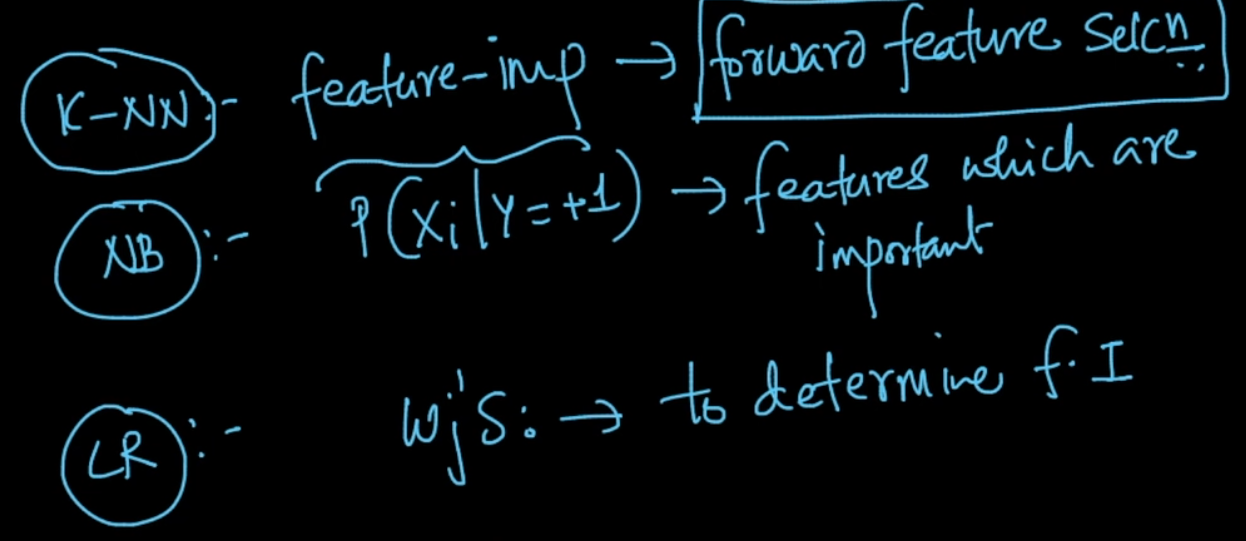 K-NN:- feature-imp → forward feature selcn
NB:- P(Xi|Y=+1) → features which are
important
LR:- Wj's: → to determine f.I